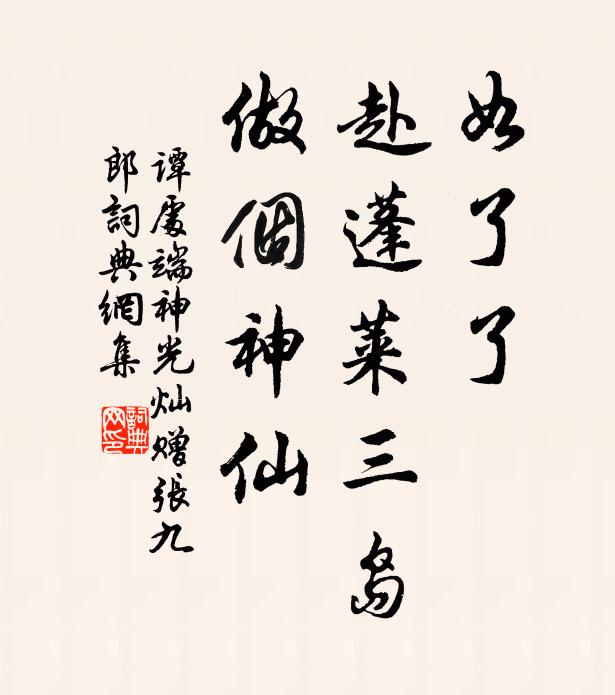 如了了
赴蓬莱三岛
做個神仙
谭處端神光灿赠張九
郎詞典網集
詞典网印